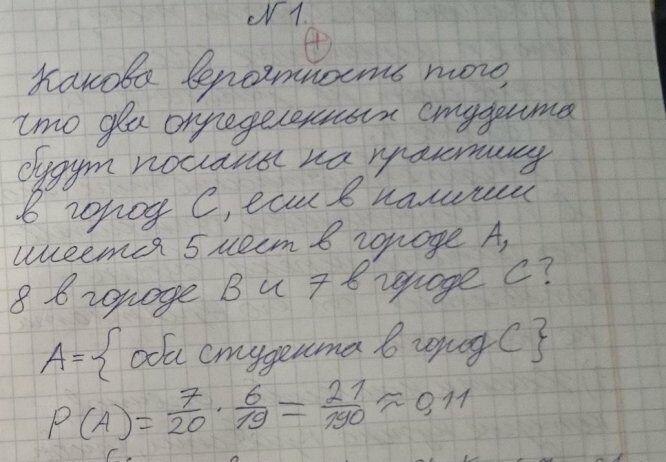 N 1.
+
Какова вероятность того,
что два определенных студента
будут посланы на практику
в город С, если в наличии
имеется 5 мест в городе А,
8 в городе В и 7 в городе С?
A = { оба студента в город С }
P(A) = 7/20 · 6/19 = 21/190 ≈ 0,11